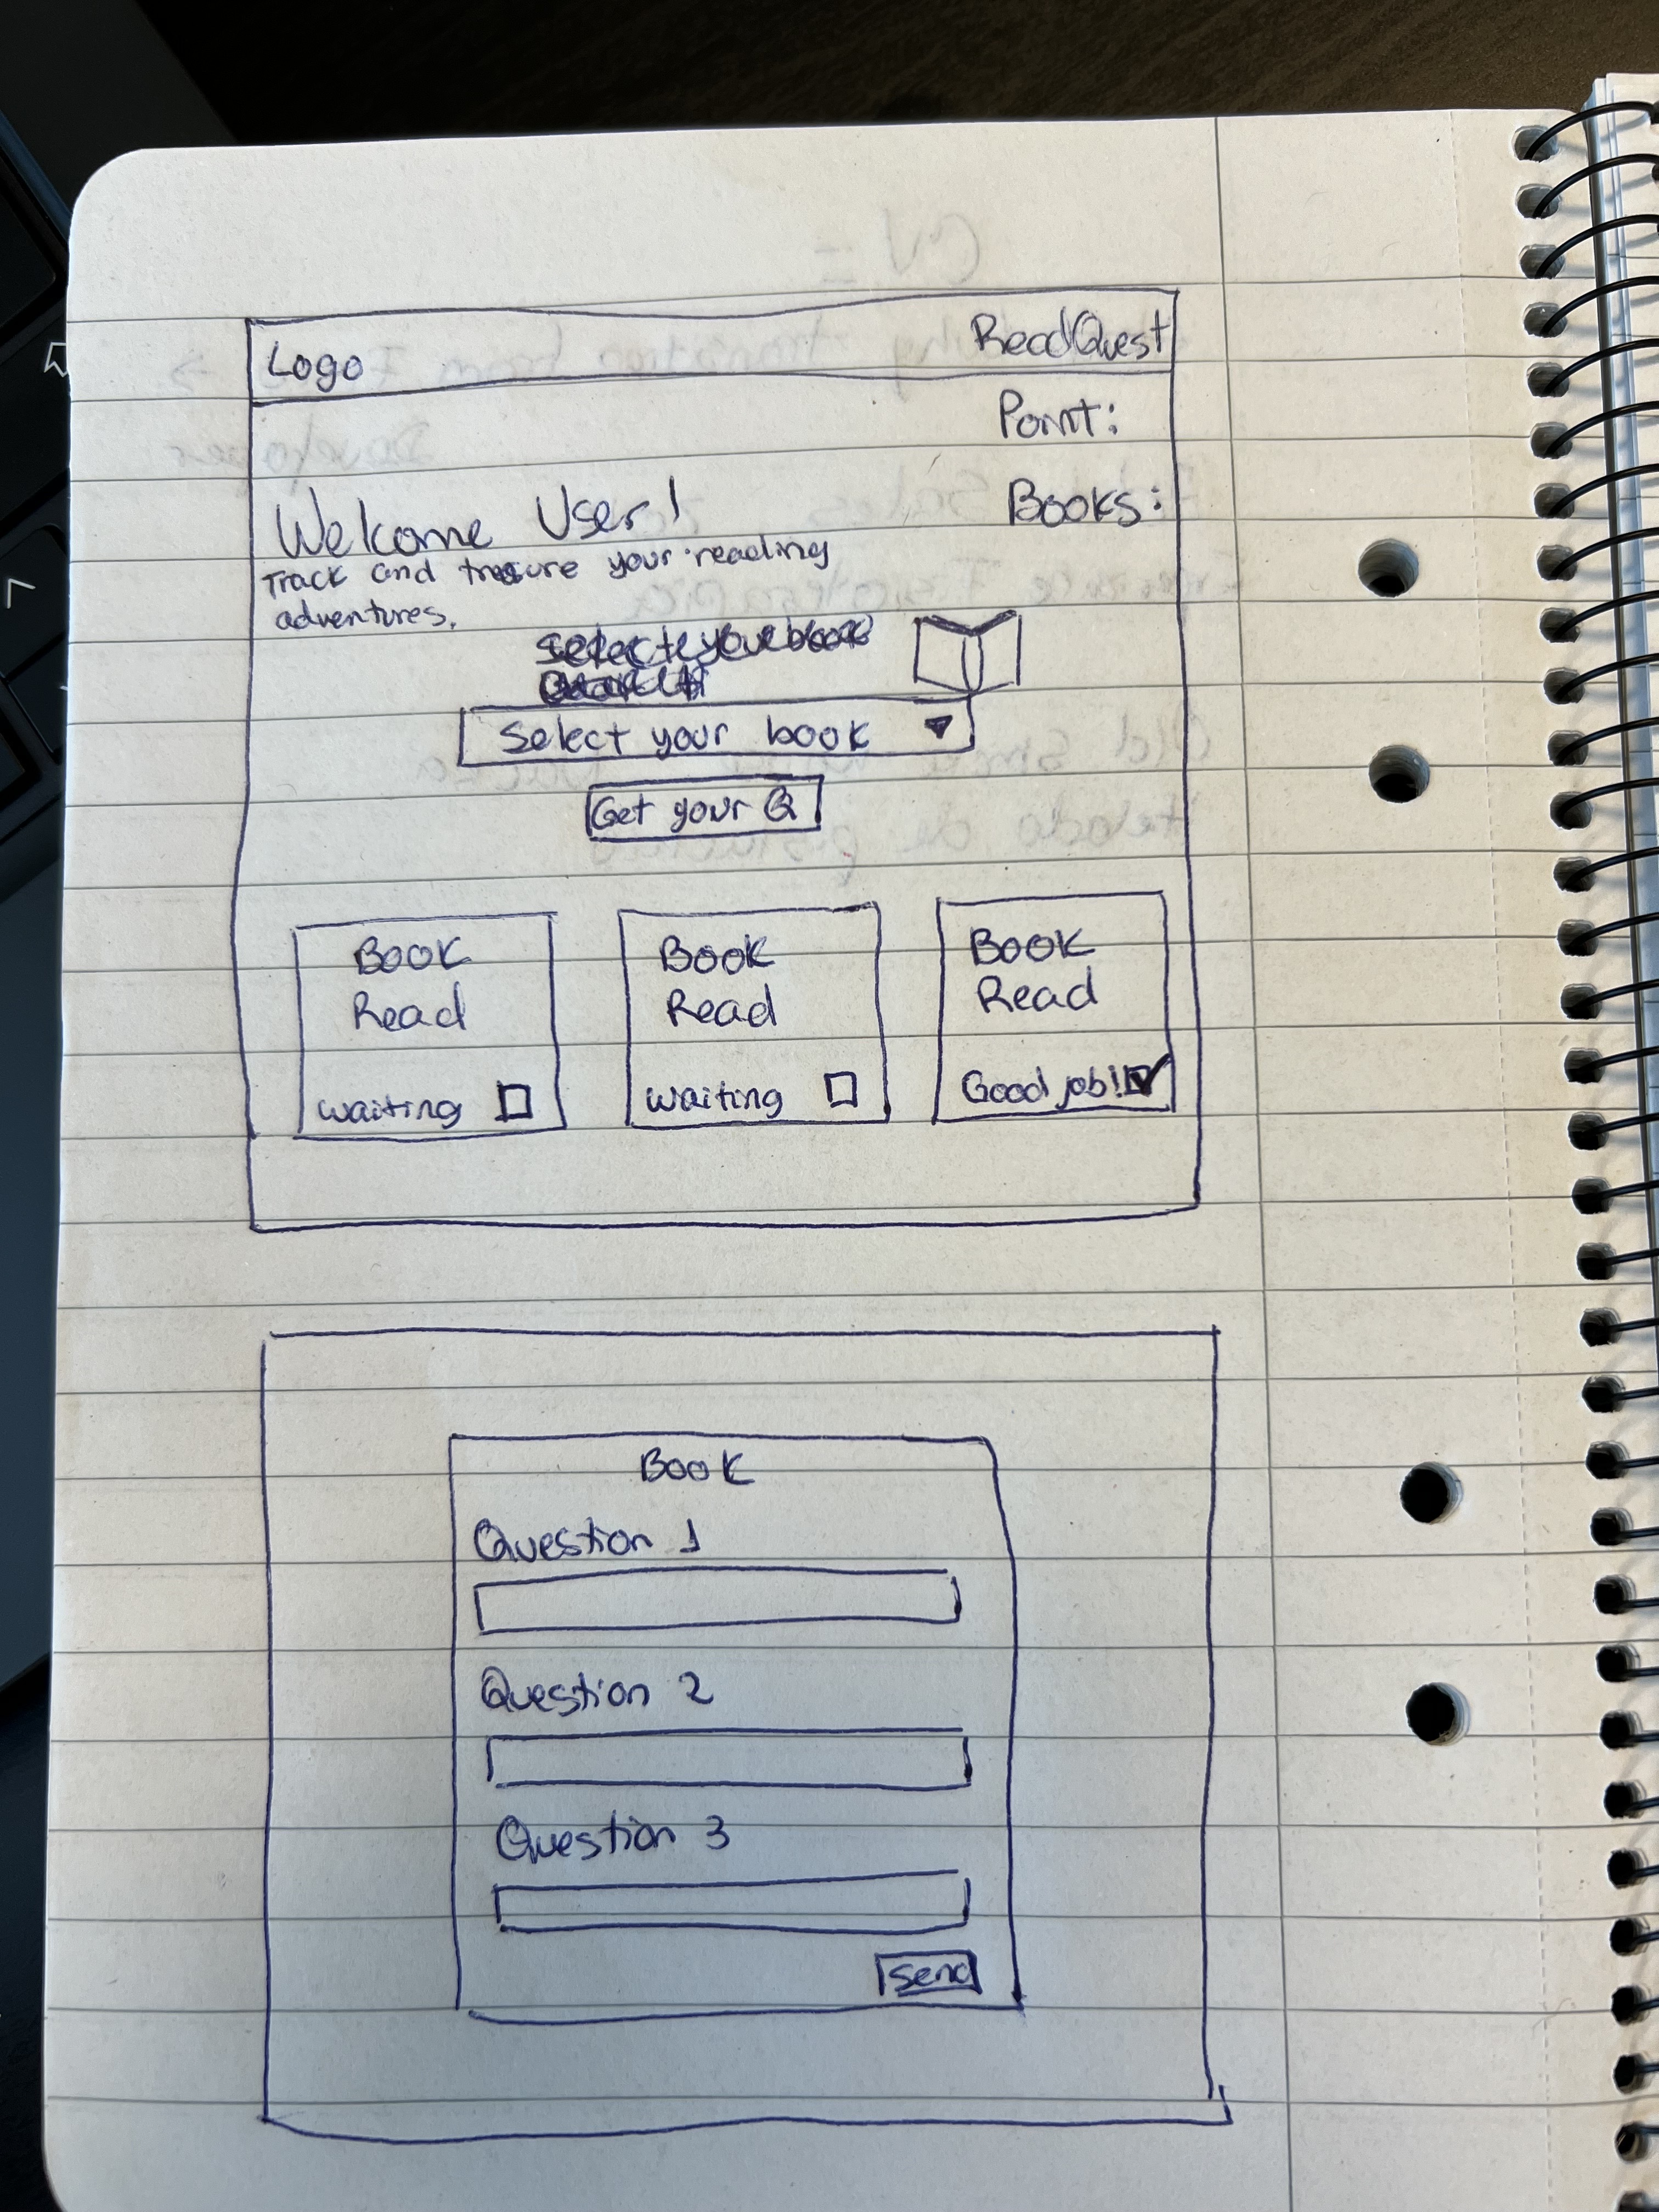 Logo
ReadQuest
Point:
Welcome User!
Books:
Track and treasure your reading
adventures.
Select your book
Select your book
Get your Q
Book
Read
waiting
Book
Read
waiting
Book
Read
Good job!
Book
Question 1
Question 2
Question 3
Send